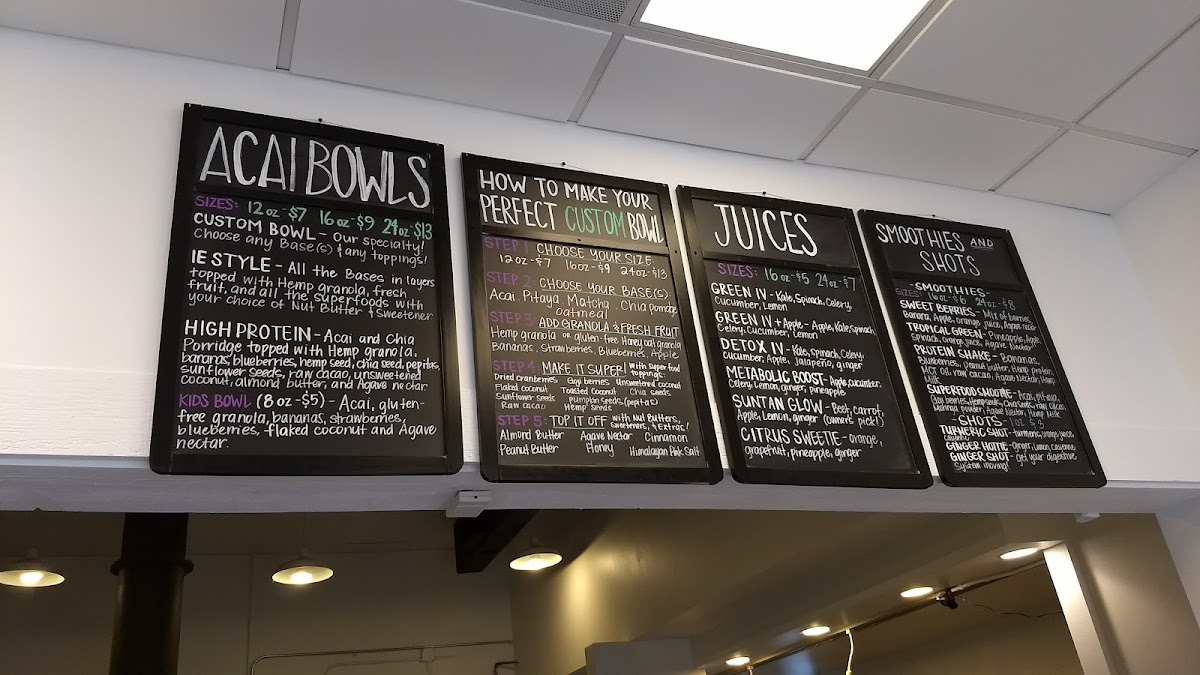 ACAI BOWLS
SIZES: 12 oz - $7 16 oz - $9 24 oz - $13
CUSTOM BOWL - Our specialty!
Choose any Base(s) & any toppings!
IE STYLE - All the Bases in layers
topped with Hemp granola, fresh
fruit, and all the superfoods with
your choice of Nut Butter & Sweetener
HIGH PROTEIN - Acai and Chia
Porridge topped with Hemp granola,
bananas, blueberries, hemp seed, chia seed, pepitas,
sunflower seeds, raw cacao, unsweetened
coconut, almond butter, and Agave nectar
KIDS BOWL (8 oz - $5) - Acai, gluten-
free granola, bananas, strawberries,
blueberries, flaked coconut and Agave
nectar.
HOW TO MAKE YOUR
PERFECT CUSTOM BOWL
STEP 1 CHOOSE YOUR SIZE:
12 oz - $7 16 oz - $9 24 oz - $13
STEP 2 CHOOSE YOUR BASE(S):
Acai . Pitaya . Matcha . Chia porridge
oatmeal
STEP 3 ADD GRANOLA & FRESH FRUIT
Hemp granola or gluten-free Honey oat granola
Bananas . Strawberries . Blueberries . Apple
STEP 4 MAKE IT SUPER! with super food toppings:
Dried cranberries Goji berries Unsweetened coconut
Flaked coconut Toasted coconut Chia seeds
Sunflower seeds pumpkin seeds (pepitas)
Raw cacao Hemp seeds
STEP 5: TOP IT OFF with Nut Butters, Sweeteners, & Extras!
Almond Butter Agave Nectar Cinnamon
Peanut Butter Honey Himalayan Pink Salt
JUICES
SIZES: 16 oz - $5 24 oz - $7
GREEN IV - Kale, Spinach, Celery,
Cucumber, Lemon
GREEN IV + Apple - Apple, Kale, spinach,
Celery, Cucumber, Lemon
DETOX IV - Kale, spinach, Celery,
Cucumber, Apple, Jalapeño, ginger
METABOLIC BOOST - Apple, cucumber,
Celery, Lemon, ginger, pineapple
SUNTAN GLOW - Beet, carrot,
Apple, Lemon, ginger (owner's pick!)
CITRUS SWEETIE - orange,
grapefruit, pineapple, ginger
SMOOTHIES AND
SHOTS
-SMOOTHIES-
SIZES: 16 oz - $6 24 oz - $8
SWEET BERRIES - Mix of berries,
Banana, Apple, orange juice, Agave nectar
TROPICAL GREEN - Pineapple, Apple,
Spinach, orange juice, Agave Nectar
PROTEIN SHAKE - Bananas,
Blueberries, peanut butter, Hemp protein,
MCT oil, raw cacao, Agave Nectar, Hemp
Milk
SUPERFOOD SMOOTHIE - Acai, pitaya,
Goji berries, Hemp seeds, Chia seeds, raw cacao,
powder, Agave Nectar, Hemp Milk
-SHOTS- 1 oz $3
TURMERIC SHOT - turmeric, orange juice,
GINGER HOTTIE - ginger, Lemon, cayenne
GINGER SHOT - get your digestive
system moving!